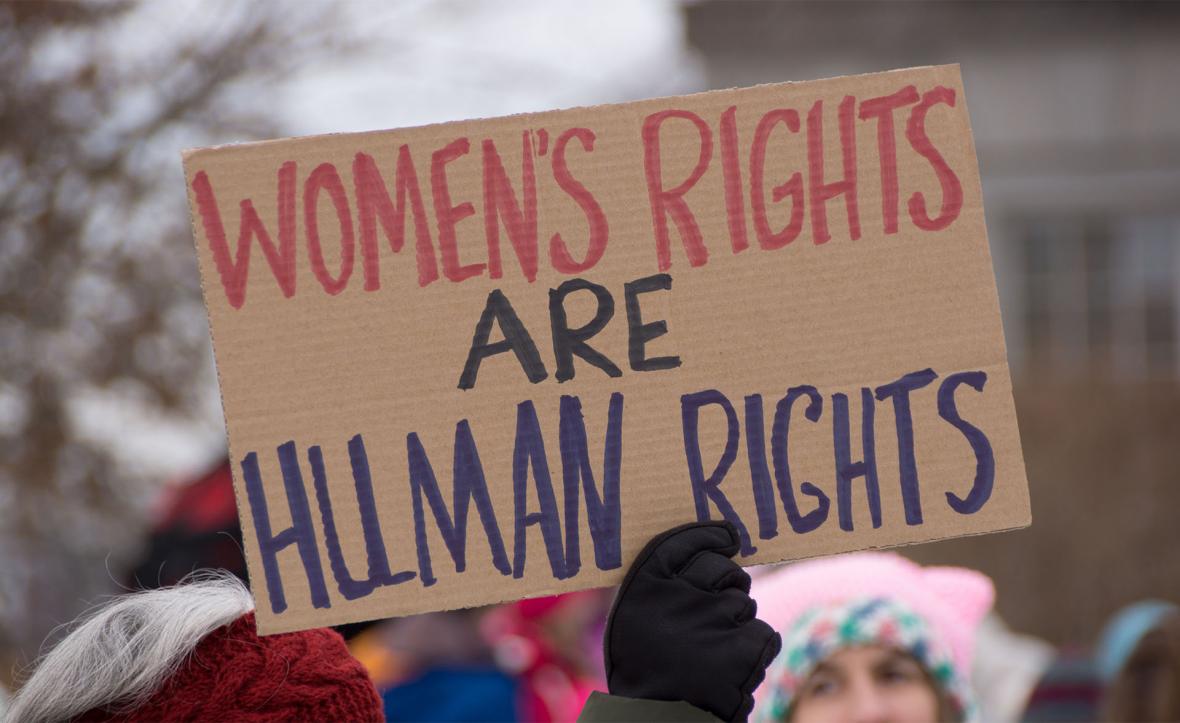 WOMEN'S RIGHTS
ARE
HUMAN RIGHTS